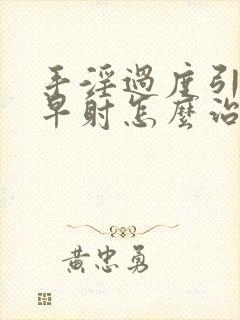 手淫過度引
早射怎麼治
黄忠勇